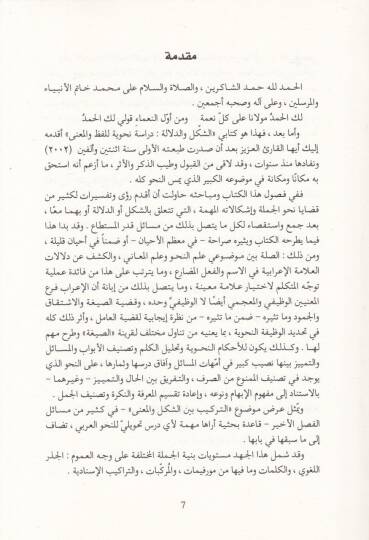 مقدمة
الحمد لله حمد الشاكرين ، والصلاة والسلام على محمد خاتم الأنبياء
والمرسلين ، وعلى آله وصحبه أجمعين .
لك الحمدُ مولانا على كلّ نعمة ومن أوّل النعماءِ قولي لك الحمدُ
وأما بعد ، فهذا هو كتابي «الشكل والدلالة : دراسة نحوية للفظ والمعنى» أقدمه
إليك أيها القارئ العزيز بعد أن صدرت طبعته الأولى سنة اثنتين وألفين (٢٠٠٢)
ونفادها منذ سنوات ، وقد لاقى من القبول وطيب الذكر والأثر ، ما أزعم أنه استحق
به مكانًا ومكانة في موضوعه الكبير الذي يمس النحو كله .
ففي فصول هذا الكتاب ومباحثه حاولت أن أقدم رؤى وتفسيرات لكثير من
قضايا نحو الجملة وإشكالاته المهمة ، التي تتعلق بالشكل أو الدلالة أو بهما معًا ،
بعد جمع واستقصاء لكل ما يتصل بذلك من مسائل قدر المستطاع . وقد بدا هذا
فيما يطرحه الكتاب ويثيره صراحة – في معظم الأحيان – أو ضمنًا في أحيان قليلة ،
ومن ذلك : الصلة بين موضوعي علم النحو وعلم المعاني ، والكشف عن دلالات
العلامة الإعرابية في الاسم والفعل المضارع ، وما يترتب على هذا من فائدة عملية
توجّه المتكلم لاختيار علامة معينة ، وما يتصل بذلك من إبانة أن الإعراب فرع
المعنيين الوظيفي والمعجمي أيضًا لا الوظيفيّ وحده ، وقضية الصيغة والاشتقاق
والجمود وما تثيره – ضمن ما تثيره – من نظرة إيجابية لقضية العامل ، وأثر ذلك كله
في تحديد الوظيفة النحوية ، بما يعنيه من تناول مختلف لقرينة «الصيغة» وطرح مهم
لها . وكذلك يكون للأحكام النحوية وتحليل الكلم وتصنيف الأبواب والمسائل
والتمييز بينها نصيب كبير في أمّهات المسائل وآفاق درسها وثمارها ، على النحو الذي
يوجد في تصنيف الممنوع من الصرف ، والتفريق بين الحال والتمييز – وغيرهما –
بالاستناد إلى مفهوم الإبهام ونوعه ، وإعادة تقسيم المعرفة والنكرة وتصنيف الجمل .
ويمثّل عرض موضوع «التركيب بين الشكل والمعنى» – في كثير من مسائل
الفصل الأخير – قاعدة بحثية أراها مهمة لأي درس تحويليّ للنحو العربي ، تضاف
إلى ما سبقها في بابها .
وقد شمل هذا الجهد مستويات بنية الجملة المختلفة على وجه العموم : الجذر
اللغوي ، والكلمات وما فيها من مورفيمات ، والمركّبات ، والتراكيب الإسنادية .
7